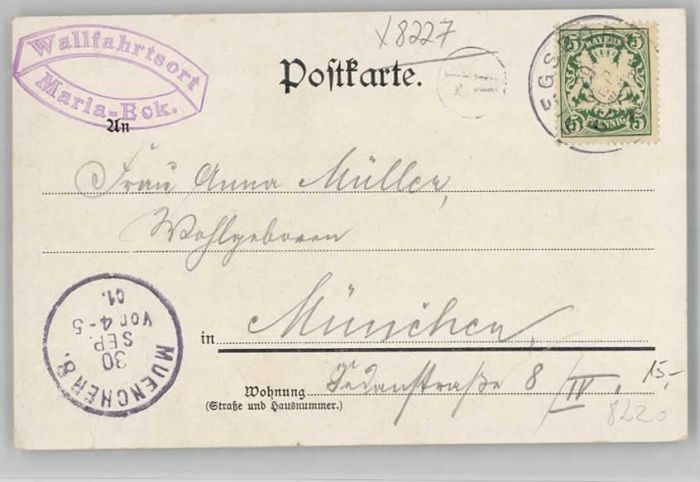 Wallfahrtsort
Maria-Eck.
X8227
Postkarte.
BAYERN
5 PFENNIG 5
An
Frau Anna Müller,
Wohlgeboren
in München,
Sedanstraße 8 / IV.
Wohnung
(Straße und Hausnummer.)
15,-
8220
MUENCHEN 8.
30
SEP.
Vor 4-5
01.